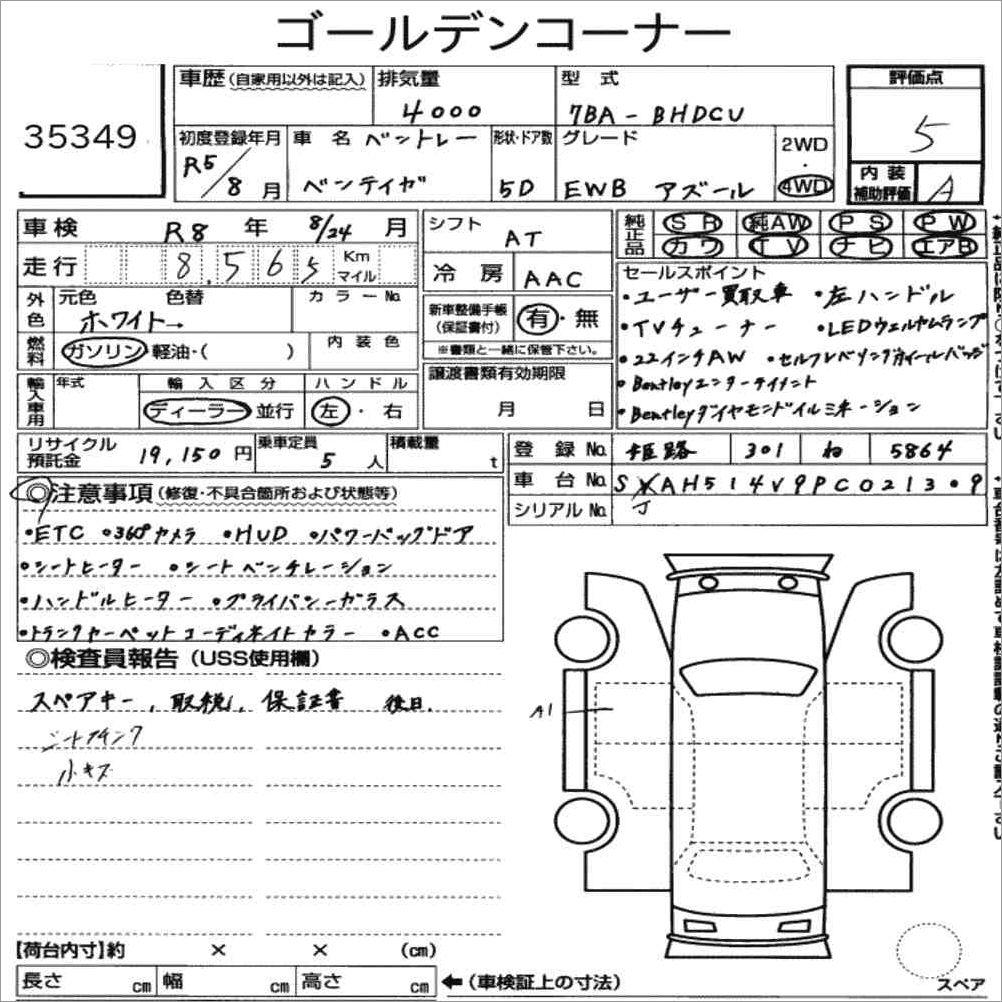 ゴールデンコーナー
35349
車歴(自家用以外は記入) 排気量 型式 評価点
4000 7BA-BHDCU 5
初度登録年月 車名 ベントレー 形状・ドア数 グレード 2WD
R5/8月 ベンテイガ 5D EWB アズール 4WD
内装補助評価 A
車検 R8年 8/24月
走行 8,565 Km マイル
シフト AT
冷房 AAC
純正品 SR 純AW PS PW
カワ TV ナビ エアB
外色 元色 色替 カラーNo.
ホワイト→
燃料 ガソリン・軽油・( ) 内装色
新車整備手帳(保証書付) 有・無
※書類と一緒に保管下さい。
セールスポイント
・ユーザー買取車 ・左ハンドル
・TVチューナー ・LEDウェルカムランプ
・22インチAW ・セルフレベリングホイールバッジ
・Bentleyエンターテイメント
・Bentleyダイヤモンドイルミネーション
輸入車用 年式 輸入区分 ハンドル
ディーラー 並行 左・右
譲渡書類有効期限
月 日
リサイクル預託金 19,150円 乗車定員 5人 積載量 t
登録No. 姫路 301 ね 5864
車台No. SXAH514V9PC0213・9
J
シリアルNo.
◎注意事項(修復・不具合箇所および状態等)
・ETC ・360°カメラ ・HUD ・パワーバックドア
・シートヒーター ・シートベンチレーション
・ハンドルヒーター ・プライバシーガラス
・トランクカーペットコーディネイトカラー ・ACC
◎検査員報告(USS使用欄)
スペアキー、取説、保証書 後日.
小キズ
A1
【荷台内寸】約 × × (cm)
長さ cm 幅 cm 高さ cm ←(車検証上の寸法)
スペア